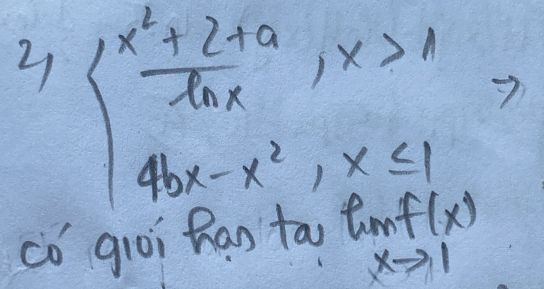 2, { x² + 2 + a
ln x , x > 1 →
4bx - x² , x ≤ 1
có giới hạn tại lim f(x)
x→1